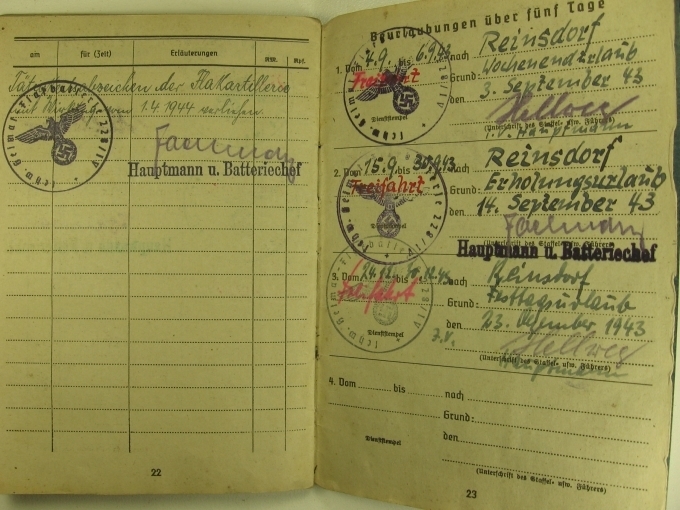 am für (Zeit) Erläuterungen
Tätigkeitsabzeichen der Flakartillerie
mit Wirkung vom 1.4.1944 verliehen
Hauptmann u. Batteriechef
22
Beurlaubungen über fünf Tage
1. Vom 4.9. bis 6.9.43 nach Reinsdorf
Freifahrt Grund: Wochenendurlaub
den 3. September 43
Hellweg
Dienststempel
(Unterschrift des Staffel- usw. Führers)
I.V. Hauptmann
2. Vom 15.9. bis 30.9.43 nach Reinsdorf
Freifahrt Grund: Erholungsurlaub
den 14. September 43
Dienststempel
(Unterschrift des Staffel- usw. Führers)
Hauptmann u. Batteriechef
3. Vom 24.12. bis 30.12.43 nach Reinsdorf
Freifahrt Grund: Festtagsurlaub
den 23. Dezember 1943
Dienststempel I.V. Hellweg
(Unterschrift des Staffel- usw. Führers)
Hauptmann
4. Vom bis nach
Grund:
Dienststempel den
(Unterschrift des Staffel- usw. Führers)
23